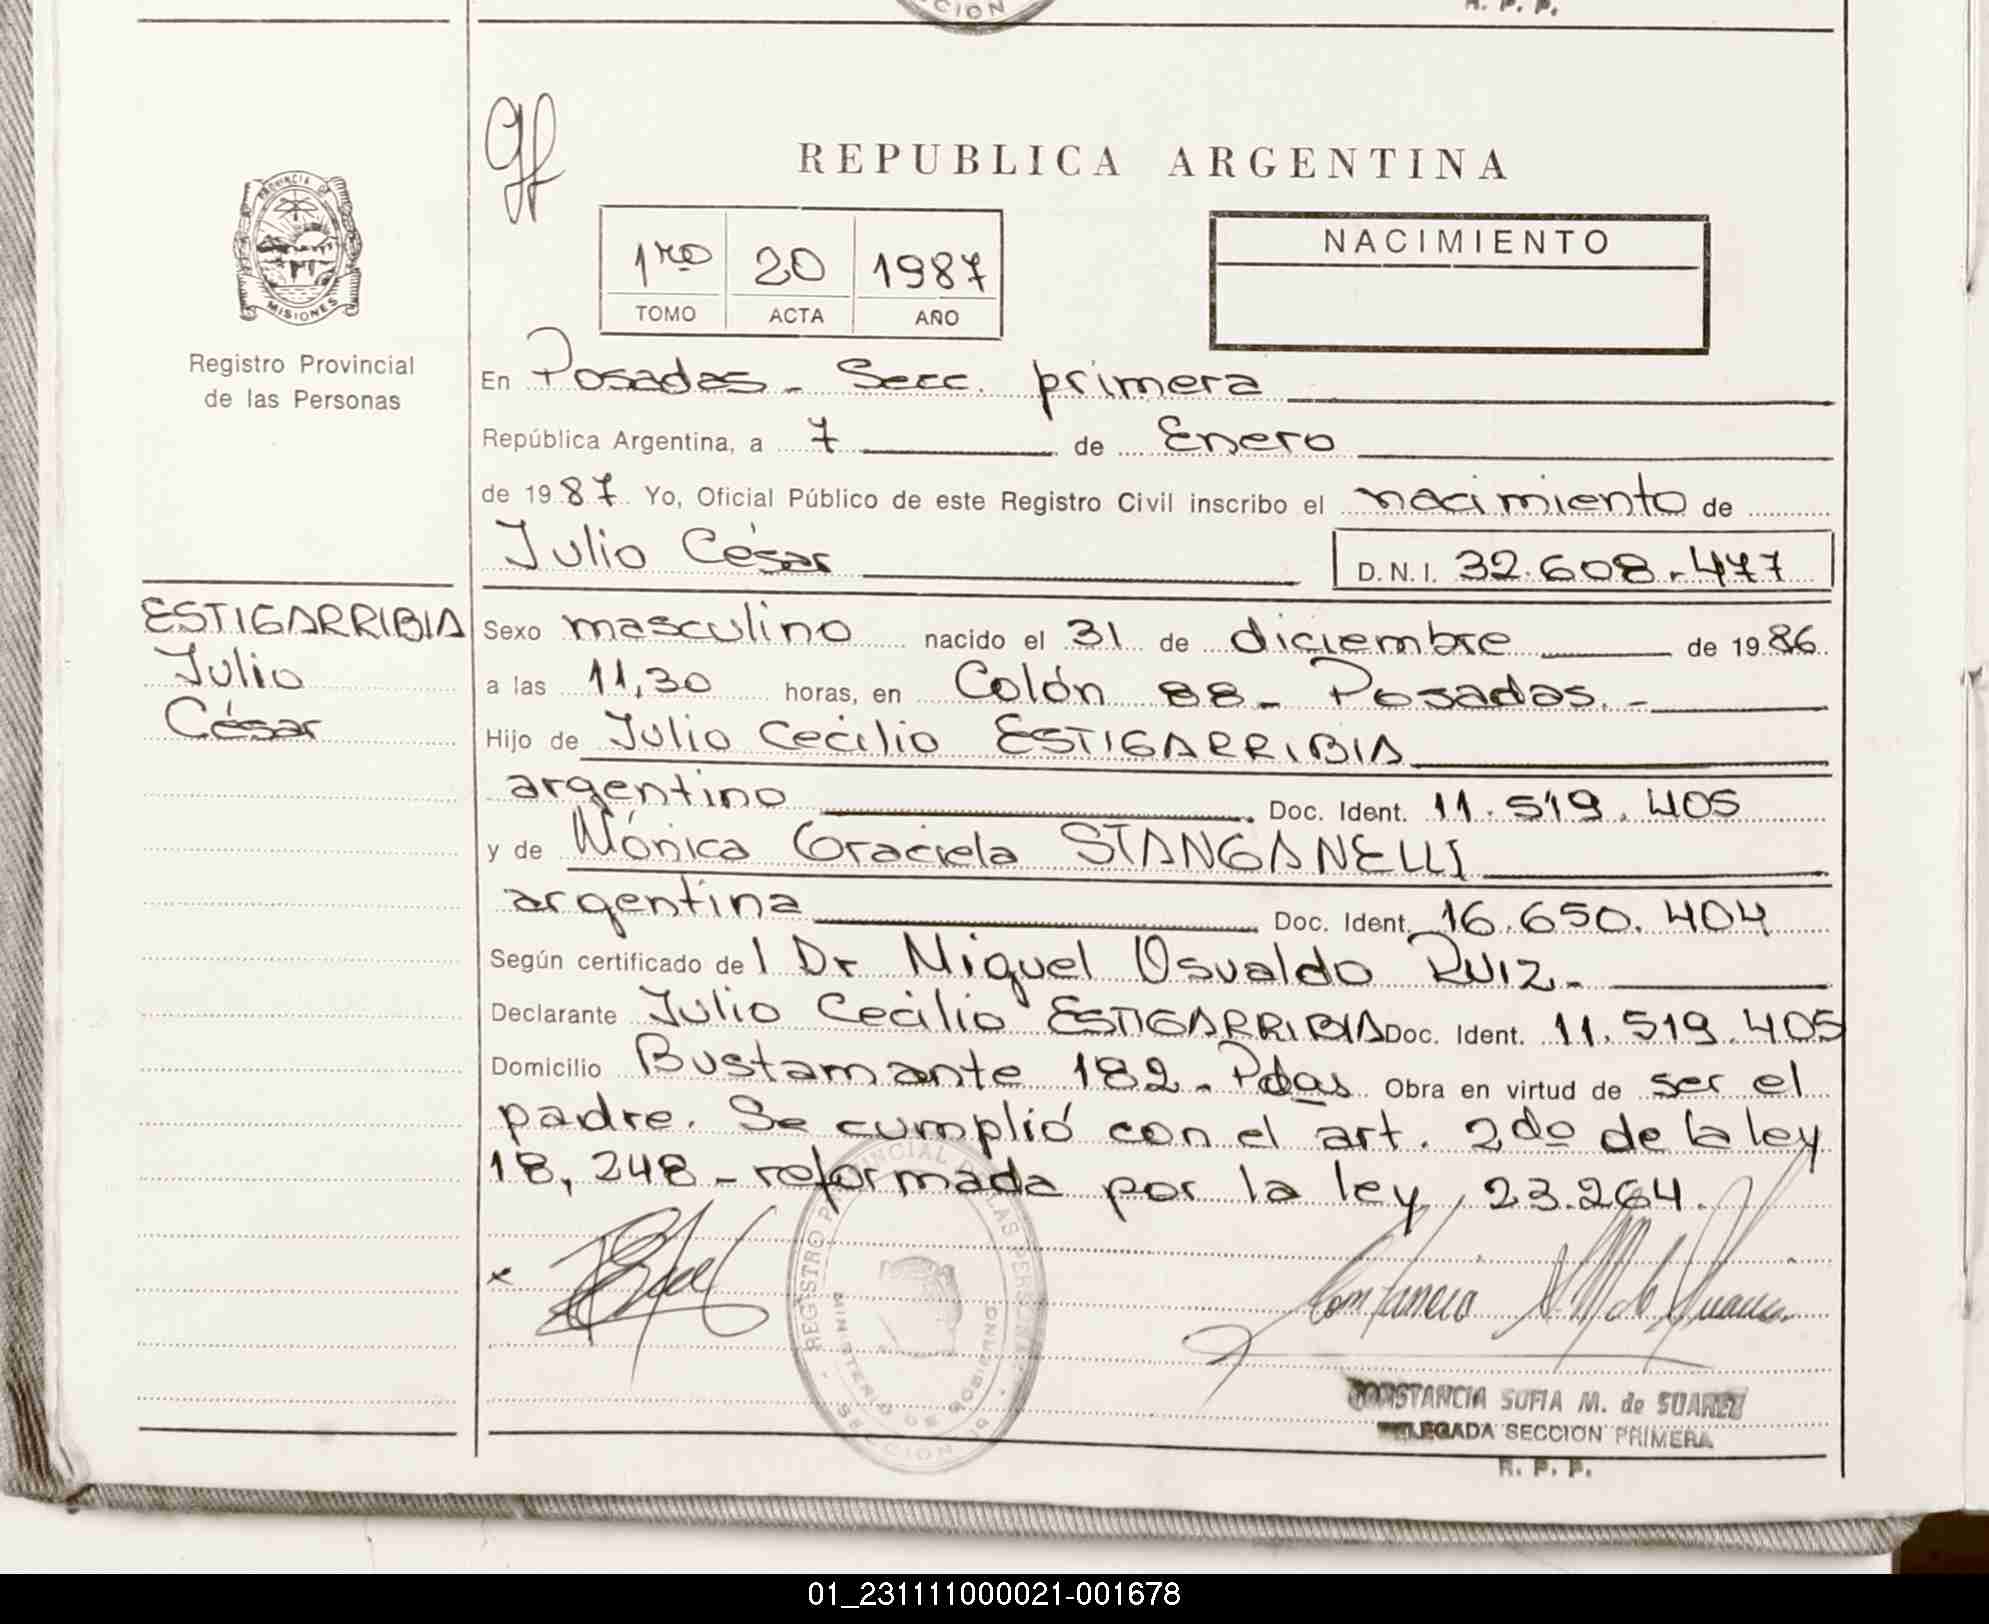 CCION
R. P. P.
REPUBLICA ARGENTINA
PROVINCIA DE
MISIONES
Registro Provincial
de las Personas
1ro 20 1987
TOMO ACTA AÑO
NACIMIENTO
En Posadas - Secc. primera
República Argentina, a 7 de Enero
de 1987 Yo, Oficial Público de este Registro Civil inscribo el nacimiento de
Julio César
D.N.I. 32.608.477
ESTIGARRIBIA
Julio
César
Sexo masculino nacido el 31 de diciembre de 1986
a las 11,30 horas, en Colón 88 - Posadas. -
Hijo de Julio Cecilio ESTIGARRIBIA
argentino Doc. Ident. 11.519.405
y de Mónica Graciela STANGANELLI
argentina Doc. Ident. 16.650.404
Según certificado del Dr Miguel Osvaldo RUIZ.-
Declarante Julio Cecilio ESTIGARRIBIA Doc. Ident. 11.519.405
Domicilio Bustamante 182 - Pdas Obra en virtud de ser el
padre. Se cumplió con el art. 2do de la ley
18,248 - reformada por la ley 23.264.
REGISTRO PROVINCIAL DE LAS PERSONAS
MINISTERIO DE GOBIERNO
SECCION 1a
CONSTANCIA SOFIA M. de SUAREZ
DELEGADA SECCION PRIMERA
R. P. P.
01_231111000021-001678